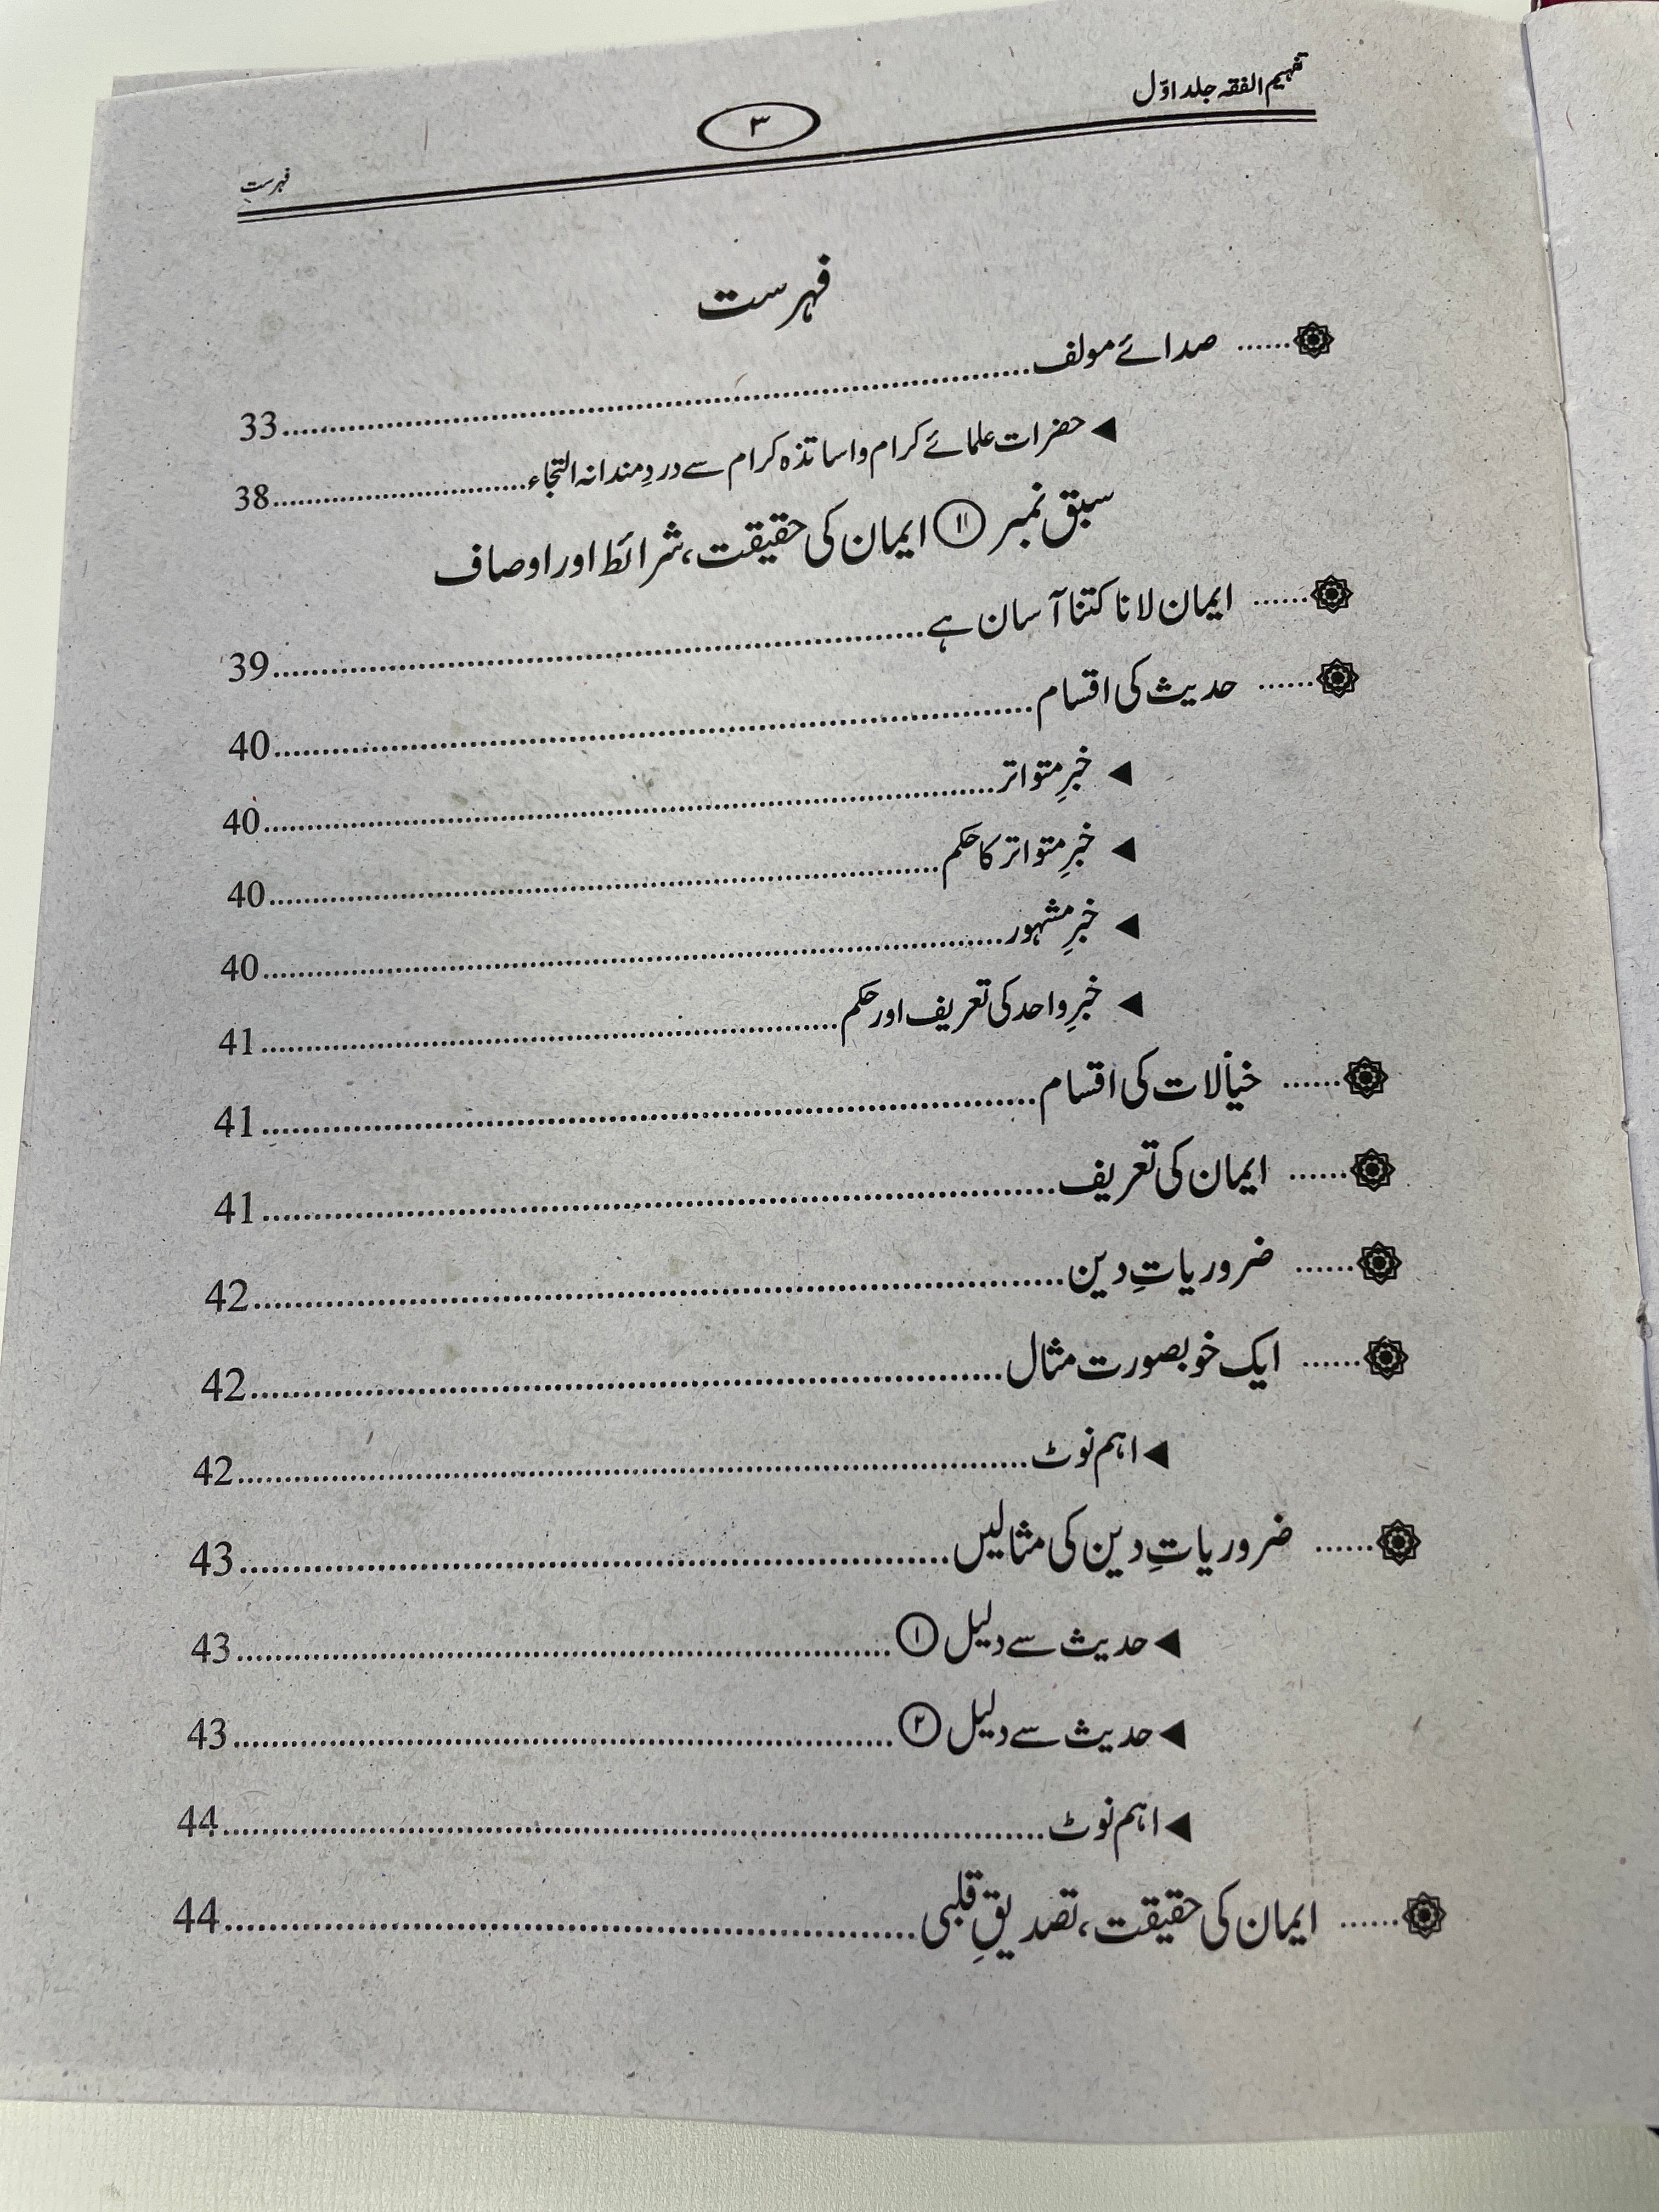 تفہیم الفقہ جلد اوّل
۳
فہرست
فہرست
...... صدائے مولف ...... 33
◄ حضرات علمائے کرام و اساتذہ کرام سے دردِمندانہ التجاء ...... 38
سبق نمبر ⑪ ایمان کی حقیقت، شرائط اور اوصاف
...... ایمان لانا کتنا آسان ہے ...... 39
...... حدیث کی اقسام ...... 40
◄ خبرِ متواتر ...... 40
◄ خبرِ متواتر کا حکم ...... 40
◄ خبرِ مشہور ...... 40
◄ خبرِ واحد کی تعریف اور حکم ...... 41
...... خیالات کی اقسام ...... 41
...... ایمان کی تعریف ...... 41
...... ضروریاتِ دین ...... 42
...... ایک خوبصورت مثال ...... 42
◄ اہم نوٹ ...... 42
...... ضروریاتِ دین کی مثالیں ...... 43
◄ حدیث سے دلیل ① ...... 43
◄ حدیث سے دلیل ② ...... 43
◄ اہم نوٹ ...... 44
...... ایمان کی حقیقت، تصدیقِ قلبی ...... 44